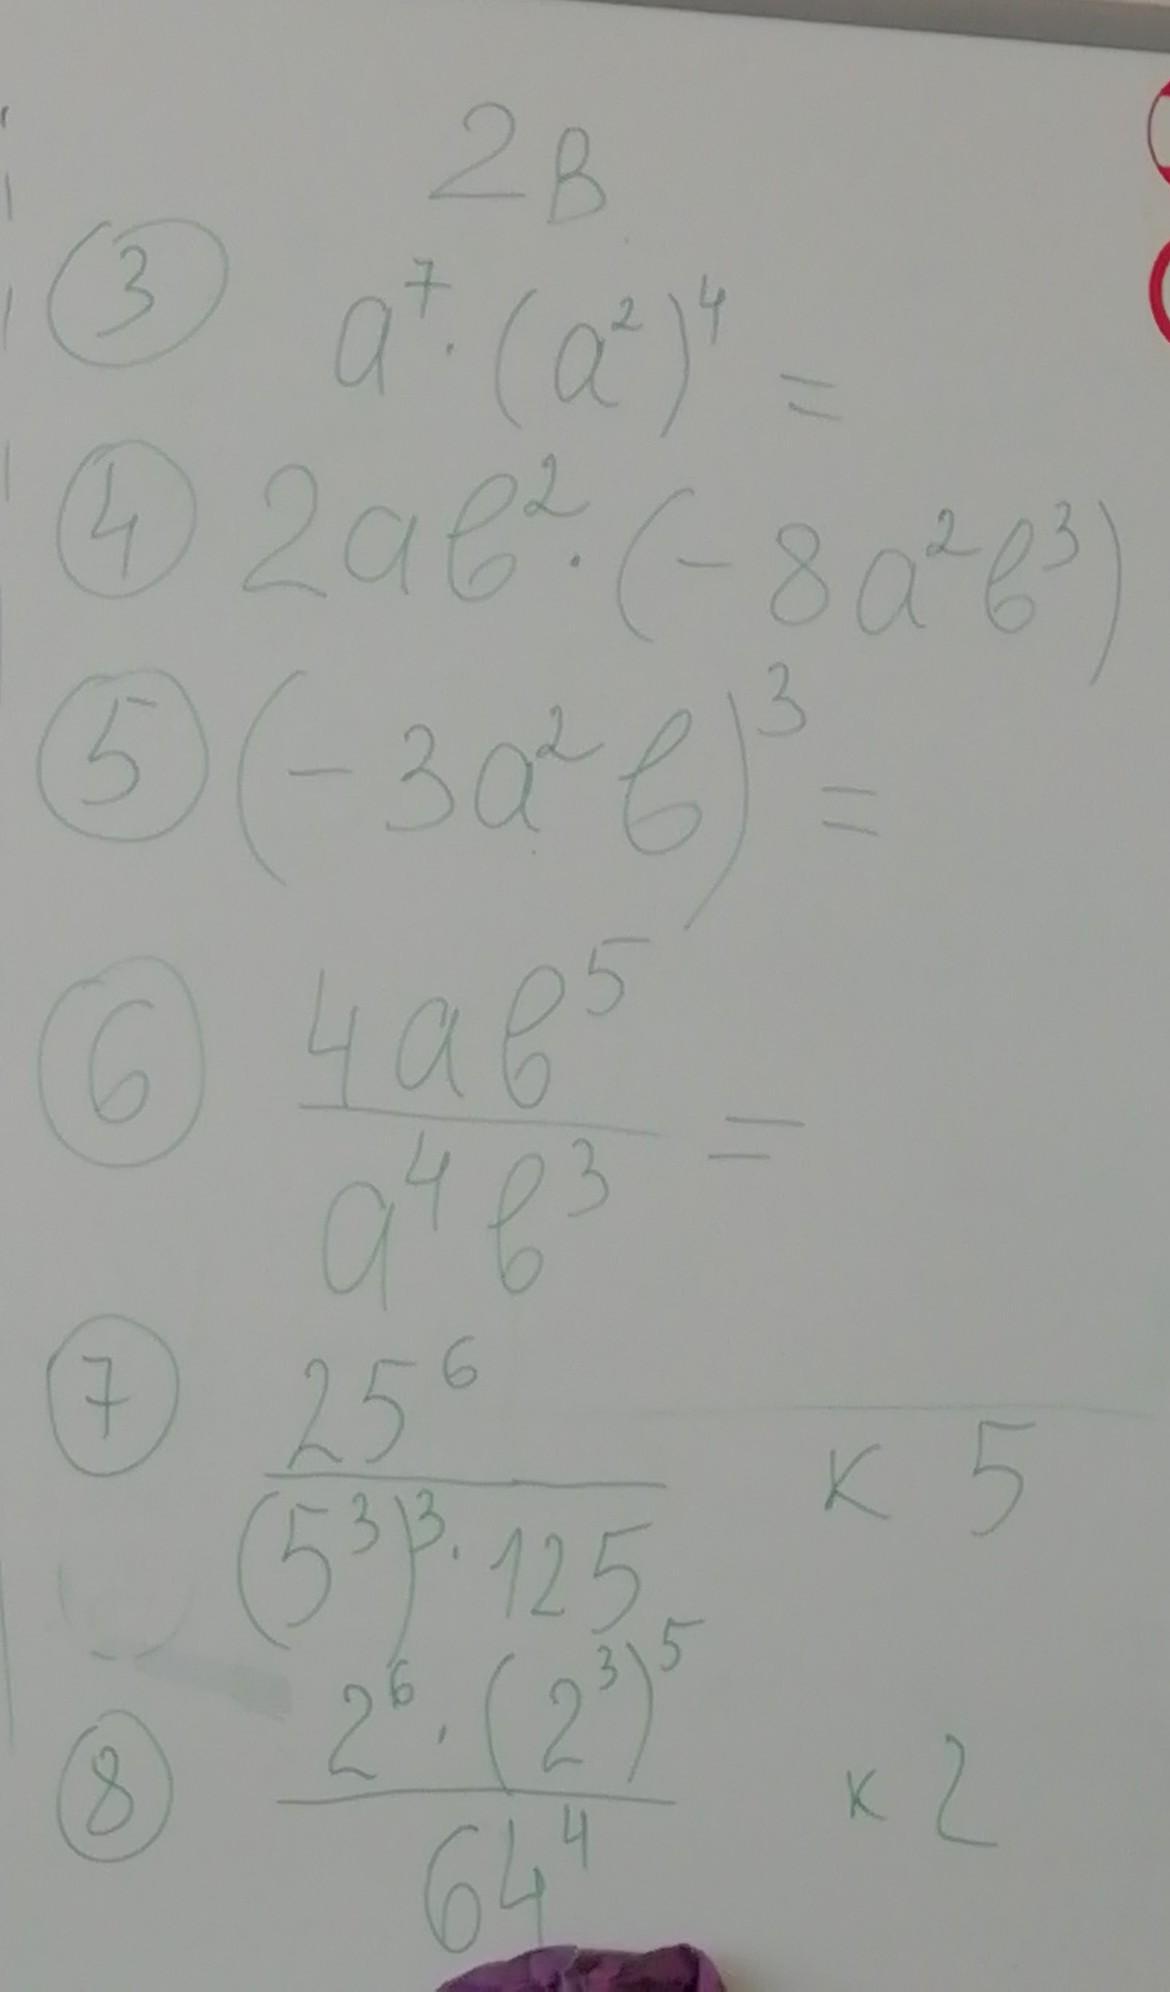 2В
③ a⁷·(a²)⁴ =
④ 2aв²·(-8a²в³)
⑤ (-3a²в)³ =
⑥ 4aв⁵ / a⁴в³ =
⑦ 25⁶ / (5³)³·125 к 5
⑧ 2⁶·(2³)⁵ / 64⁴ к 2